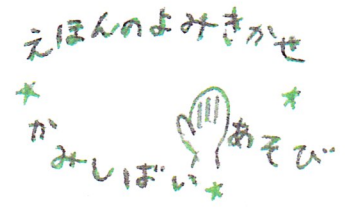 えほんのよみきかせ
かみしばい あそび